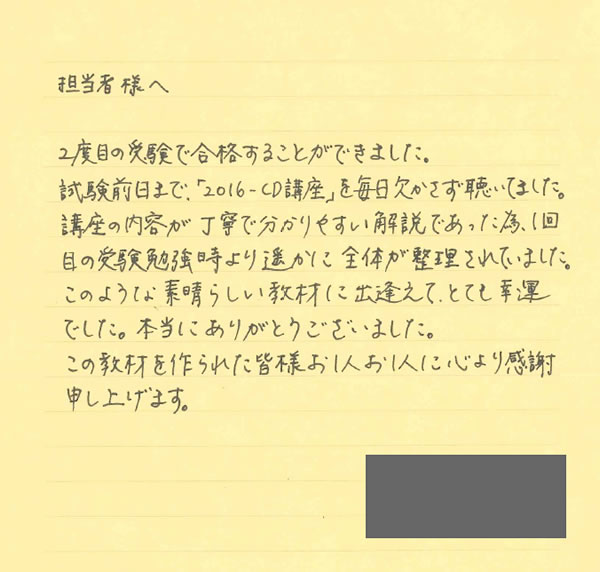 担当者様へ
2度目の受験で合格することができました。
試験前日まで、「2016-CD講座」を毎日欠かさず聴いてました。
講座の内容が丁寧で分かりやすい解説であった為、1回
目の受験勉強時より遥かに全体が整理されていました。
このような素晴らしい教材に出逢えて、とても幸運
でした。本当にありがとうございました。
この教材を作られた皆様お1人お1人に心より感謝
申し上げます。